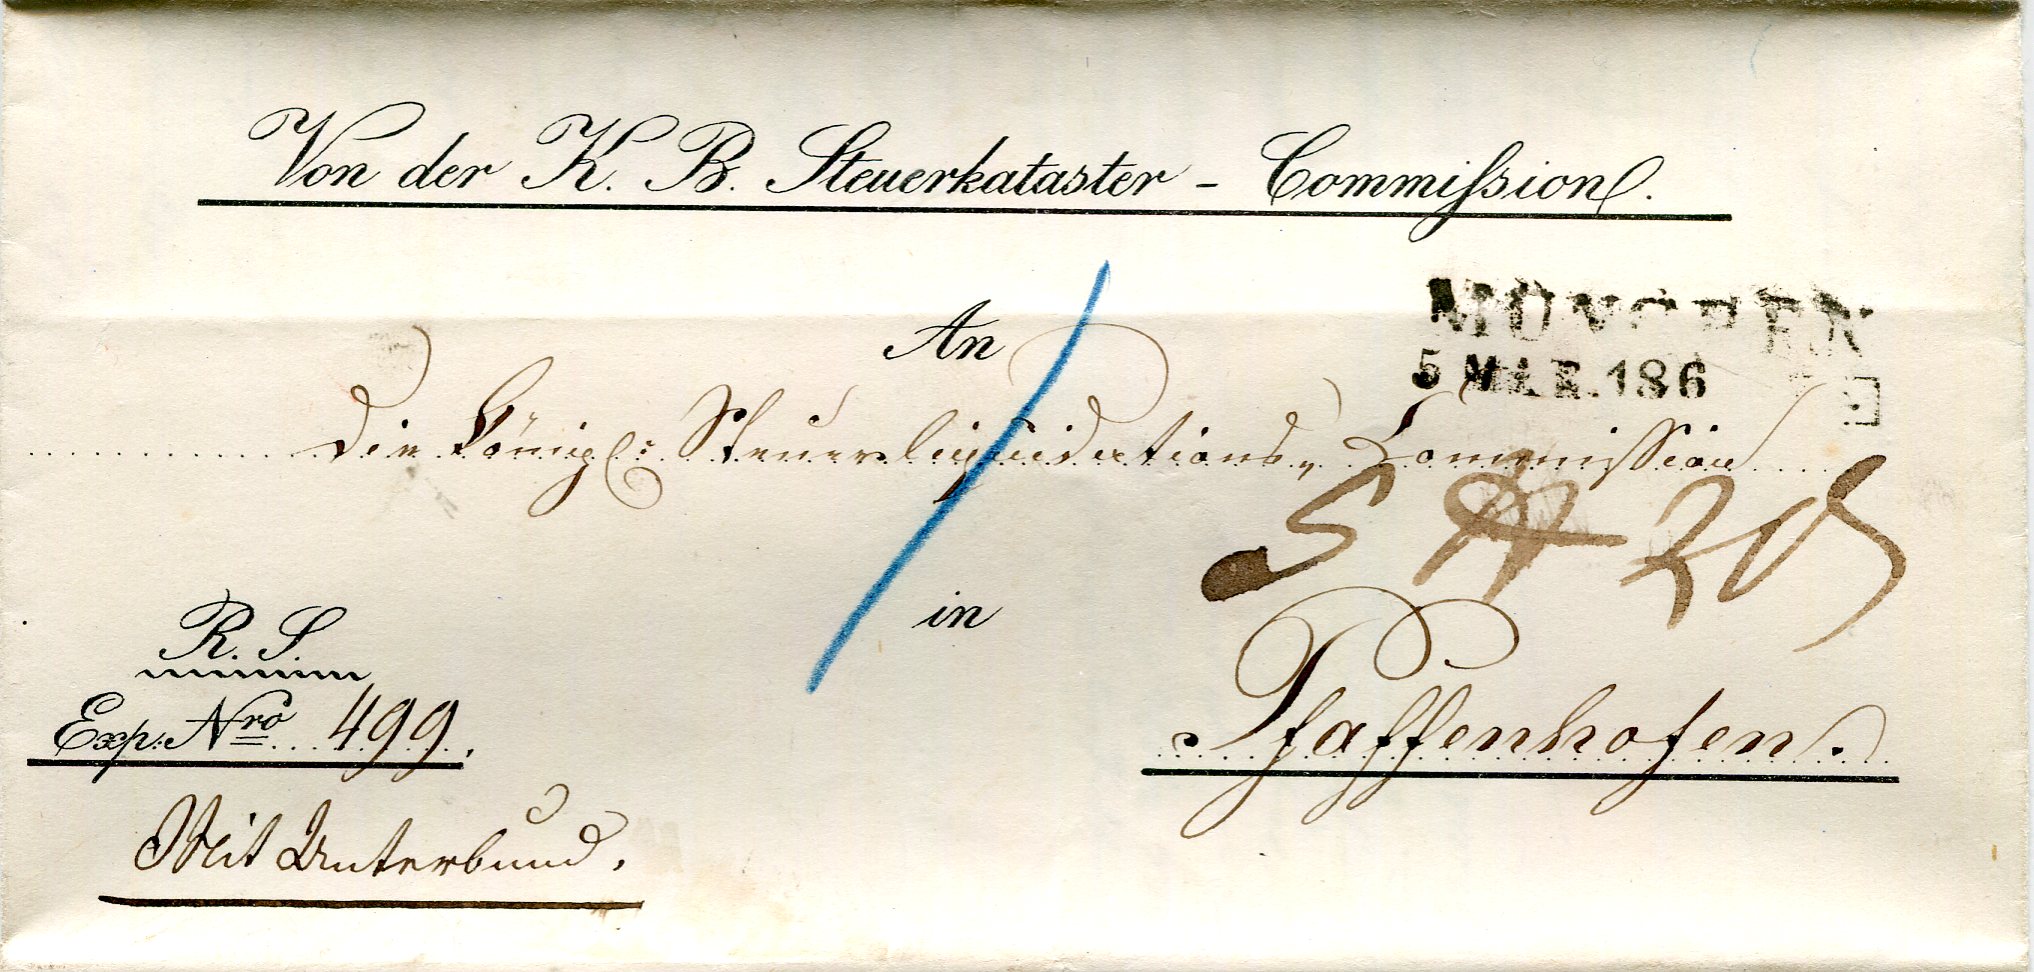 Von der K. B. Steuerkataster - Commißion.
MÜNCHEN
5 MÄR. 186
An
die königl: Steuerliquidations„ Kommission
5 ℔ 20
in
R. S.
Pfaffenhofen.
Exp: Nro 499.
Mit Unterbund.